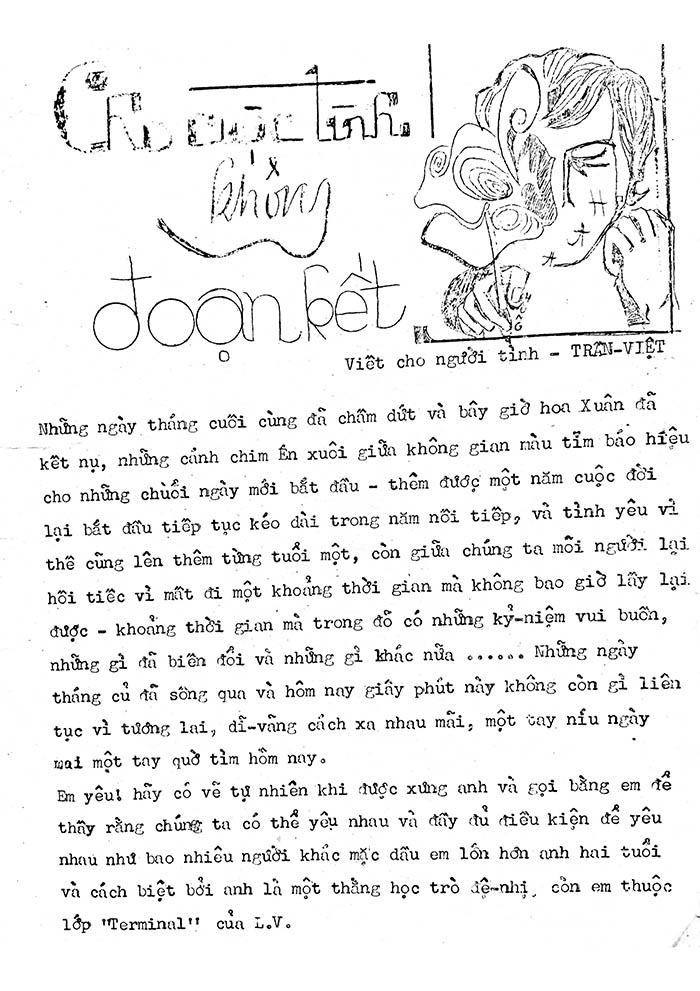 Cho cuộc tình
không
đoạn kết
Viết cho người tình - TRẦN-VIỆT
Những ngày tháng cuối cùng đã chấm dứt và bây giờ hoa Xuân đã
kết nụ, những cánh chim Én xuôi giữa không gian màu tím báo hiệu
cho những chuỗi ngày mới bắt đầu - thêm được một năm cuộc đời
lại bắt đầu tiếp tục kéo dài trong năm nối tiếp, và tình yêu vì
thế cũng lên thêm từng tuổi một, còn giữa chúng ta mỗi người lại
hối tiếc vì mất đi một khoảng thời gian mà không bao giờ lấy lại
được - khoảng thời gian mà trong đó có những kỷ-niệm vui buồn,
những gì đã biến đổi và những gì khác nữa ...... Những ngày
tháng củ đã sống qua và hôm nay giây phút này không còn gì liên
tục vì tương lai, dĩ-vãng cách xa nhau mãi, một tay níu ngày
mai một tay quờ tìm hôm nay.
Em yêu! hãy có vẽ tự nhiên khi được xưng anh và gọi bằng em để
thấy rằng chúng ta có thể yêu nhau và đầy đủ điều kiện để yêu
nhau như bao nhiêu người khác mặc dầu em lớn hơn anh hai tuổi
và cách biệt bởi anh là một thằng học trò đệ-nhị, còn em thuộc
lớp "Terminal" của L.V.